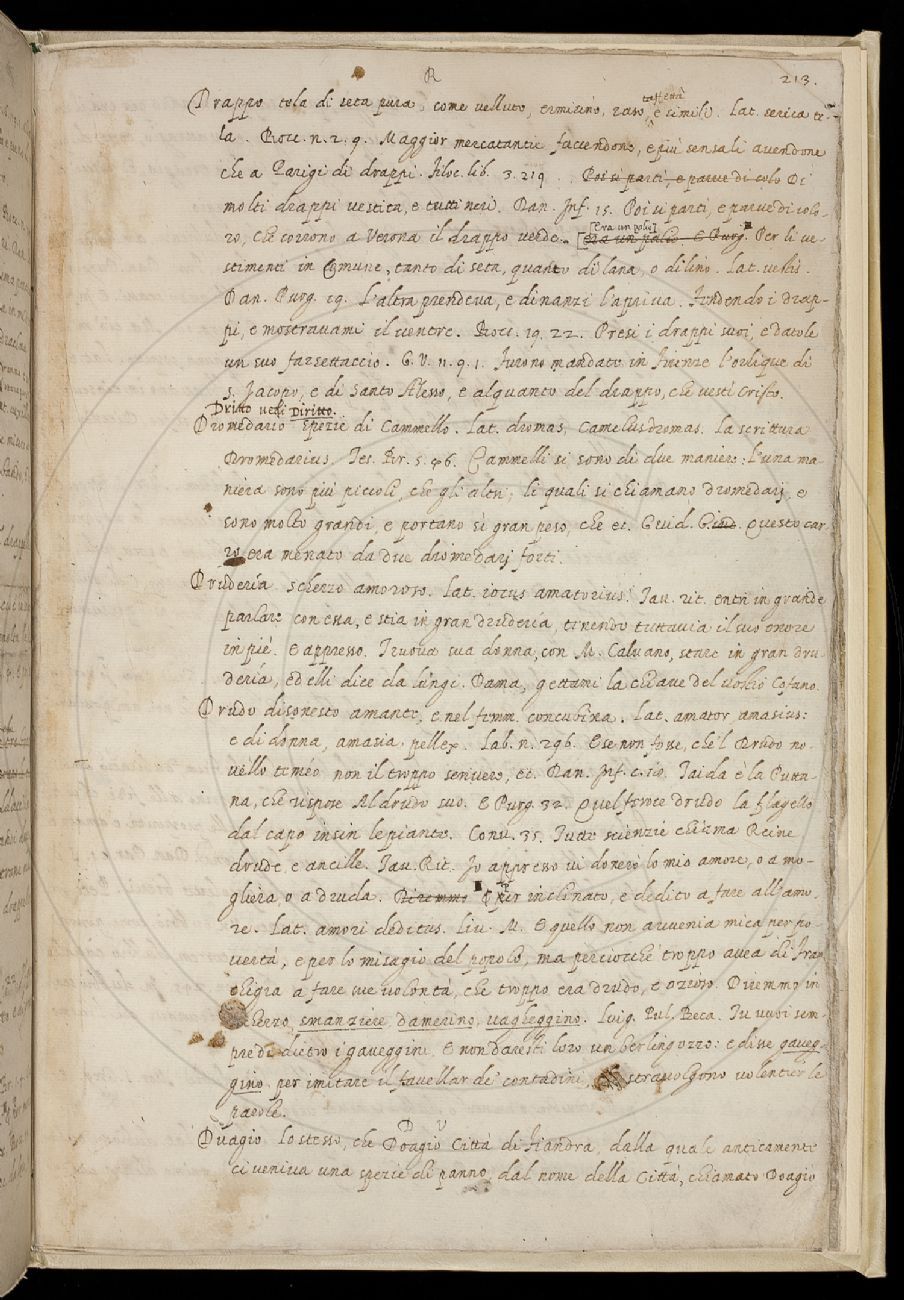 R
213.
Drappo tela di seta pura, come velluto, ermisino, raso, taffettà e simili. Lat. serica te-
la. Bocc. n. 2. 9. Maggior mercatantie faccendone, e più sensali avendone
che a Parigi di drappi. Filoc. lib. 3. 219. Poi si partì, e parve di colo Di
molti drappi vestita, e tutti neri. Dan. Inf. 15. Poi si partì, e parve di colo-
ro, che corrono a Verona il drappo verde. [era un palio] [era un palio E Purg. Per li ve-
stimenti in Comune, tanto di seta, quanto di lana, o di lino. Lat. vestis.
Dan. Purg. 19. L'altra prendeva, e dinanzi l'apriva. Fendendo i drap-
pi, e mostravami il ventre. Bocc. 19. 22. Presi i drappi suoi, e datole
un suo farsettaccio. G. V. 11. 9. 1. Furono mandate in Firenze l'orlique di
S. Jacopo, e di Santo Alesso, e alquanto del drappo, che vestì Cristo.
Dritto vedi Diritto.
Dromedario Spezie di Cammello. Lat. dromas, Camelus dromas. La scrittura
Dromedarius. Tes. Br. 5. 46. Cammelli si sono di due maniere: l'una ma-
niera sono più piccoli, che gli altri, li quali si chiamano dromedarj, e
sono molto grandi, e portano sì gran peso, che et. Guid. Giud. Questo car-
ro era menato da due dromedarj forti.
Druderìa scherzo amoroso. Lat. iocus amatorius. Tav. rit. entri in grande
parlare con essa, e stia in gran druderìa, tenendo tuttavia il suo onore
in piè. E appresso. Truova sua donna, con M. Calvano, stare in gran dru-
derìa, ed elli dice da lungi. Dama, gettami la chiave del vostro Cofano.
Drudo disonesto amante, e nel femm. concubina. Lat. amator, amasius:
e di donna, amasia, pellex. Lab. n. 296. E se non fosse, che 'l Drudo no-
vello teméo non il troppo scrivere, et. Dan. Inf. c. 18. Taida è la Putta-
na, che rispose Al drudo suo. E Purg. 32. Quel feroce drudo la flagellò
dal capo insin le piante. Conv. 35. Tutte scienzie chiama Reine
drude e ancille. Tav. Rit. Io appresso vi donerò lo mio amore, o a mo-
gliera, o a druda. Diremmo E per inclinato, e dedito a fare all'amo-
re. Lat. amori deditus. Liv. M. E quello non avvenia mica per po-
vertà, e per lo misagio del popolo, ma perciocchè troppo avea di fran
chigia a fare sue volontà, che troppo era drudo, e ozioso. Diremmo in
scherzo smanziere, damerino, vagheggino. Luig. Pul. Beca. Tu vuoi sem-
pre di dietro i gaveggini, E non daresti loro un berlingozzo: e disse gaveg-
gino, per imitare il favellar de' contadini, stravolgono volentier le
parole.
Duagio. Lo stesso, che Doagio Città di Fiandra, dalla quale anticamente
ci veniva una spezie di panno, dal nome della Città, chiamato Doagio